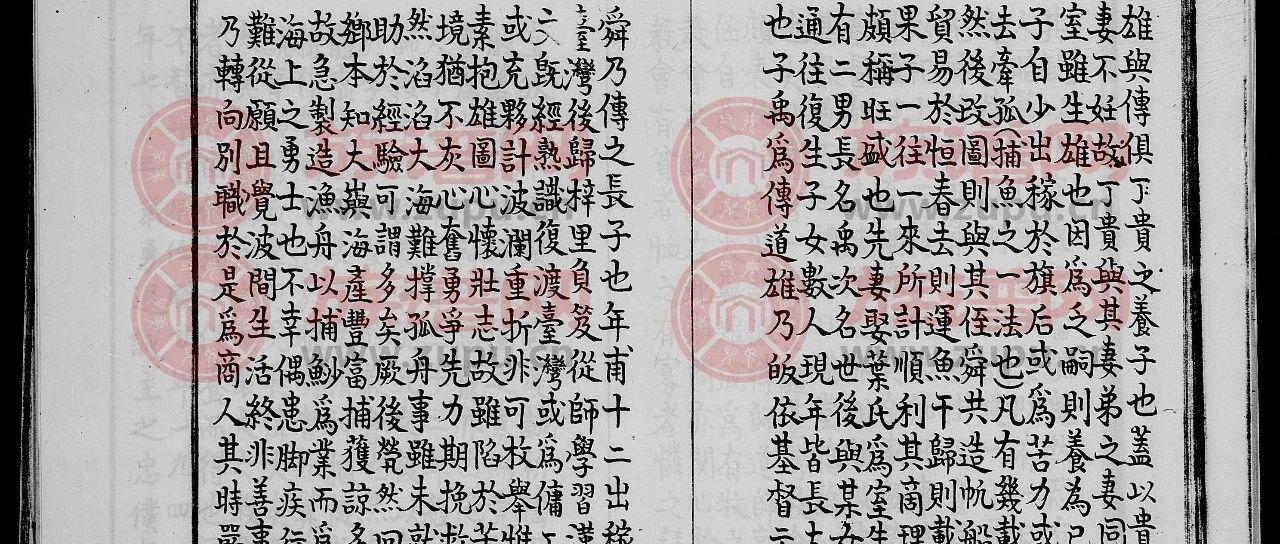 雄與傳俱丁貴之養子也蓋以貴
妻不妊故丁貴與其妻弟之妻同
室雖生雄也因爲乏嗣則養為己
子自少出稼於旗后或爲苦力或
去牽孤(捕魚之一法也)凡有幾載
然後改圖則與其侄舜共造帆船
貿易於恒春去則運魚干歸則載
果子一往一來所計順利其商理
頗稱旺盛也先妻娶葉氏爲室生
有二男長名禹次名世後與某女
通往復生子女數人現年皆長大
也子禹爲傳道雄乃皈依基督
舜乃傳之長子也年甫十二出稼
臺灣後歸梓里負笈從師學習漢
文既經熟識復渡臺灣或爲傭
或充夥計波瀾重折非可枚舉惟
素抱雄圖心懷壯志故雖陷於苦
境猶不灰心奮勇爭先力期挽救
然滔滔大海難撑孤舟事雖未就
助於經驗可謂多矣厥後煢然回
鄉本知大嶼海產豐富捕獲諒多
故急製造漁舟以捕魦爲業而爲
海上之勇士也不幸偶患脚疾行
難從願且覺波間生活終非善事
乃轉向別職於是爲商人其時
www.zupu.cn
www.zupu.cn
www.zupu.cn
www.zupu.cn